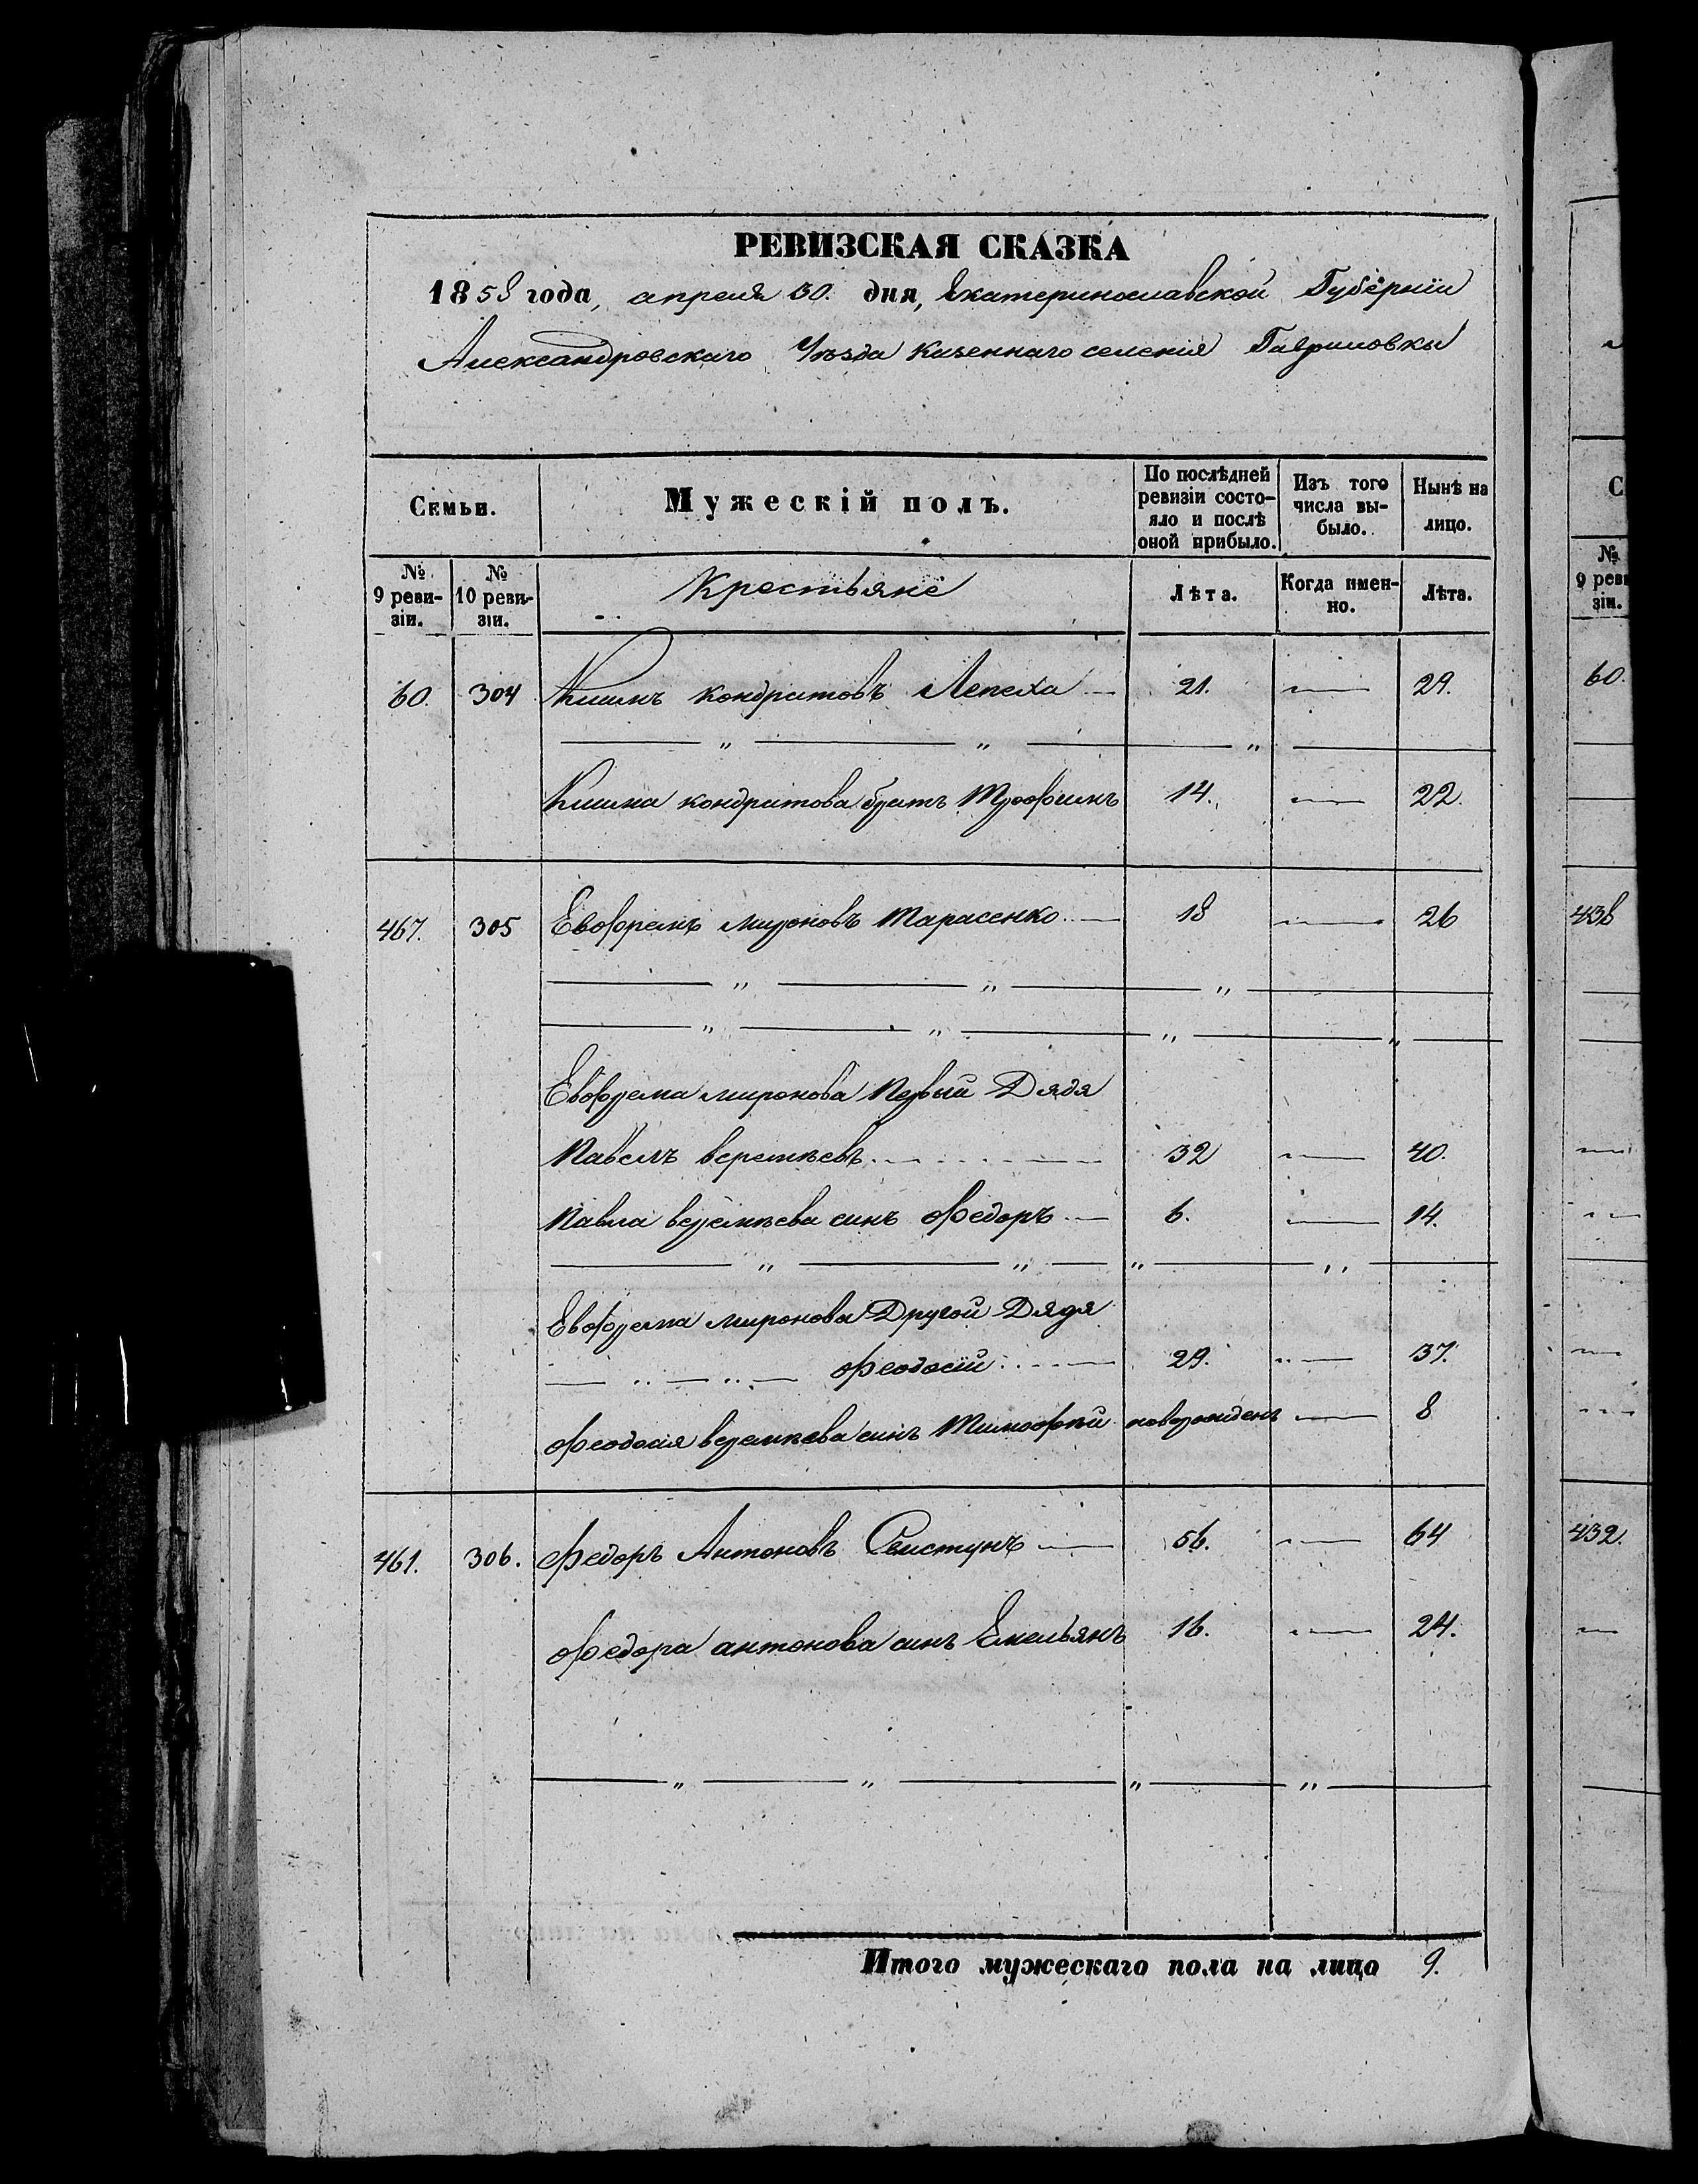 РЕВИЗСКАЯ СКАЗКА
1858 года, апреля 30. дня, Екатеринославской Губернiи
Александровскаго Уѣзда казеннаго селенiя Гавриловки
Семьи.
Мужескiй полъ.
По послѣдней ревизiи состояло и послѣ оной прибыло.
Изъ того числа выбыло.
Нынѣ на лицо.
№ 9 ревизiи.
№ 10 ревизiи.
Крестьяне
Лѣта.
Когда именно.
Лѣта.
60. 304 Климъ кондратовъ Лепеха 21. 29.
Клима кондратова братъ Трофимъ 14. 22.
467. 305 Евфремъ мироновъ Тарасенко 18 26
Евфрема миронова Первый Дядя
Павелъ веремѣевъ 32 40.
Павла веремѣева сынъ Федоръ 6. 14.
Евфрема миронова Другой Дядя
Феодосiй 29. 37.
Феодосiя веремѣева сынъ Тимофѣй новорожденъ 8
461. 306. Федоръ Антоновъ Свистунъ 56. 64
Федора антонова сынъ Емельянъ 16. 24.
Итого мужескаго пола на лицо 9.
С
№ 9 реви
зiи.
60.
438
432.